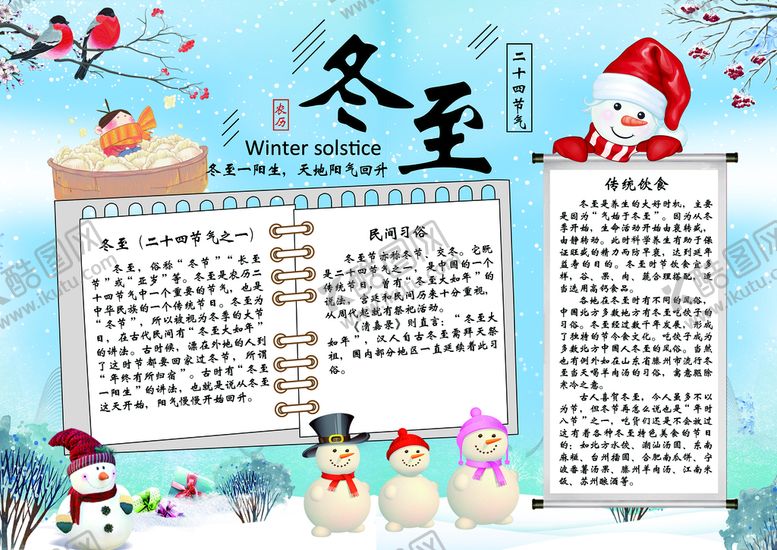 冬至
二十四节气
农历
Winter solstice
冬至一阳生，天地阳气回升
冬至（二十四节气之一）
冬至，俗称“冬节”“长至
节”或“亚岁”等。冬至是农历二
十四节气中一个重要的节气，也是
中华民族的一个传统节日。冬至为
“冬节”，所以被视为冬季的大节
日，在古代民间有“冬至大如年”
的讲法。古时候，漂在外地的人到
了这时节都要回家过冬节，所谓
“年终有所归宿”。古时有“冬至
一阳生”的讲法，也就是说从冬至
这天开始，阳气慢慢开始回升。
民间习俗
冬至节亦称冬节、交冬。它既
是二十四节气之一，是中国的一个
传统节日，曾有“冬至大如年”的
说法，宫廷和民间历来十分重视，
从周代起就有祭祀活动。
《清嘉录》则直言：“冬至大
如年”，汉人自古冬至需拜天祭
祖，国内部分地区一直延续着此习
俗。
传统饮食
冬至是养生的大好时机，主要
是因为“气始于冬至”。因为从冬
季开始，生命活动开始由衰转盛，
由静转动。此时科学养生有助于保
证旺盛的精力而防早衰，达到延年
益寿的目的。冬至时节饮食宜多
样，谷、果、肉、蔬合理搭配，适
当选用高钙食品。
各地在冬至时有不同的风俗，
中国北方多数地方有冬至吃饺子的
习俗。冬至经过数千年发展，形成了
独特的节令食文化。吃饺子成为
多数北方中国人冬至的风俗。当然
也有例外如在山东省滕州市流行冬
至当天喝羊肉汤的习俗，寓意驱除
寒冷之意。
古人喜贺冬至，今人虽多不以
为节，但冬节再怎么说也是“年时
八节”之一，吃货们还是不会放过
这有着各种冬至特色美食的节日
的：如北方水饺、潮汕汤圆、东南
麻糍、台州擂圆、合肥南瓜饼、宁
波番薯汤果、滕州羊肉汤、江南米
饭、苏州酿酒等。
酷图网
www.ikutu.com